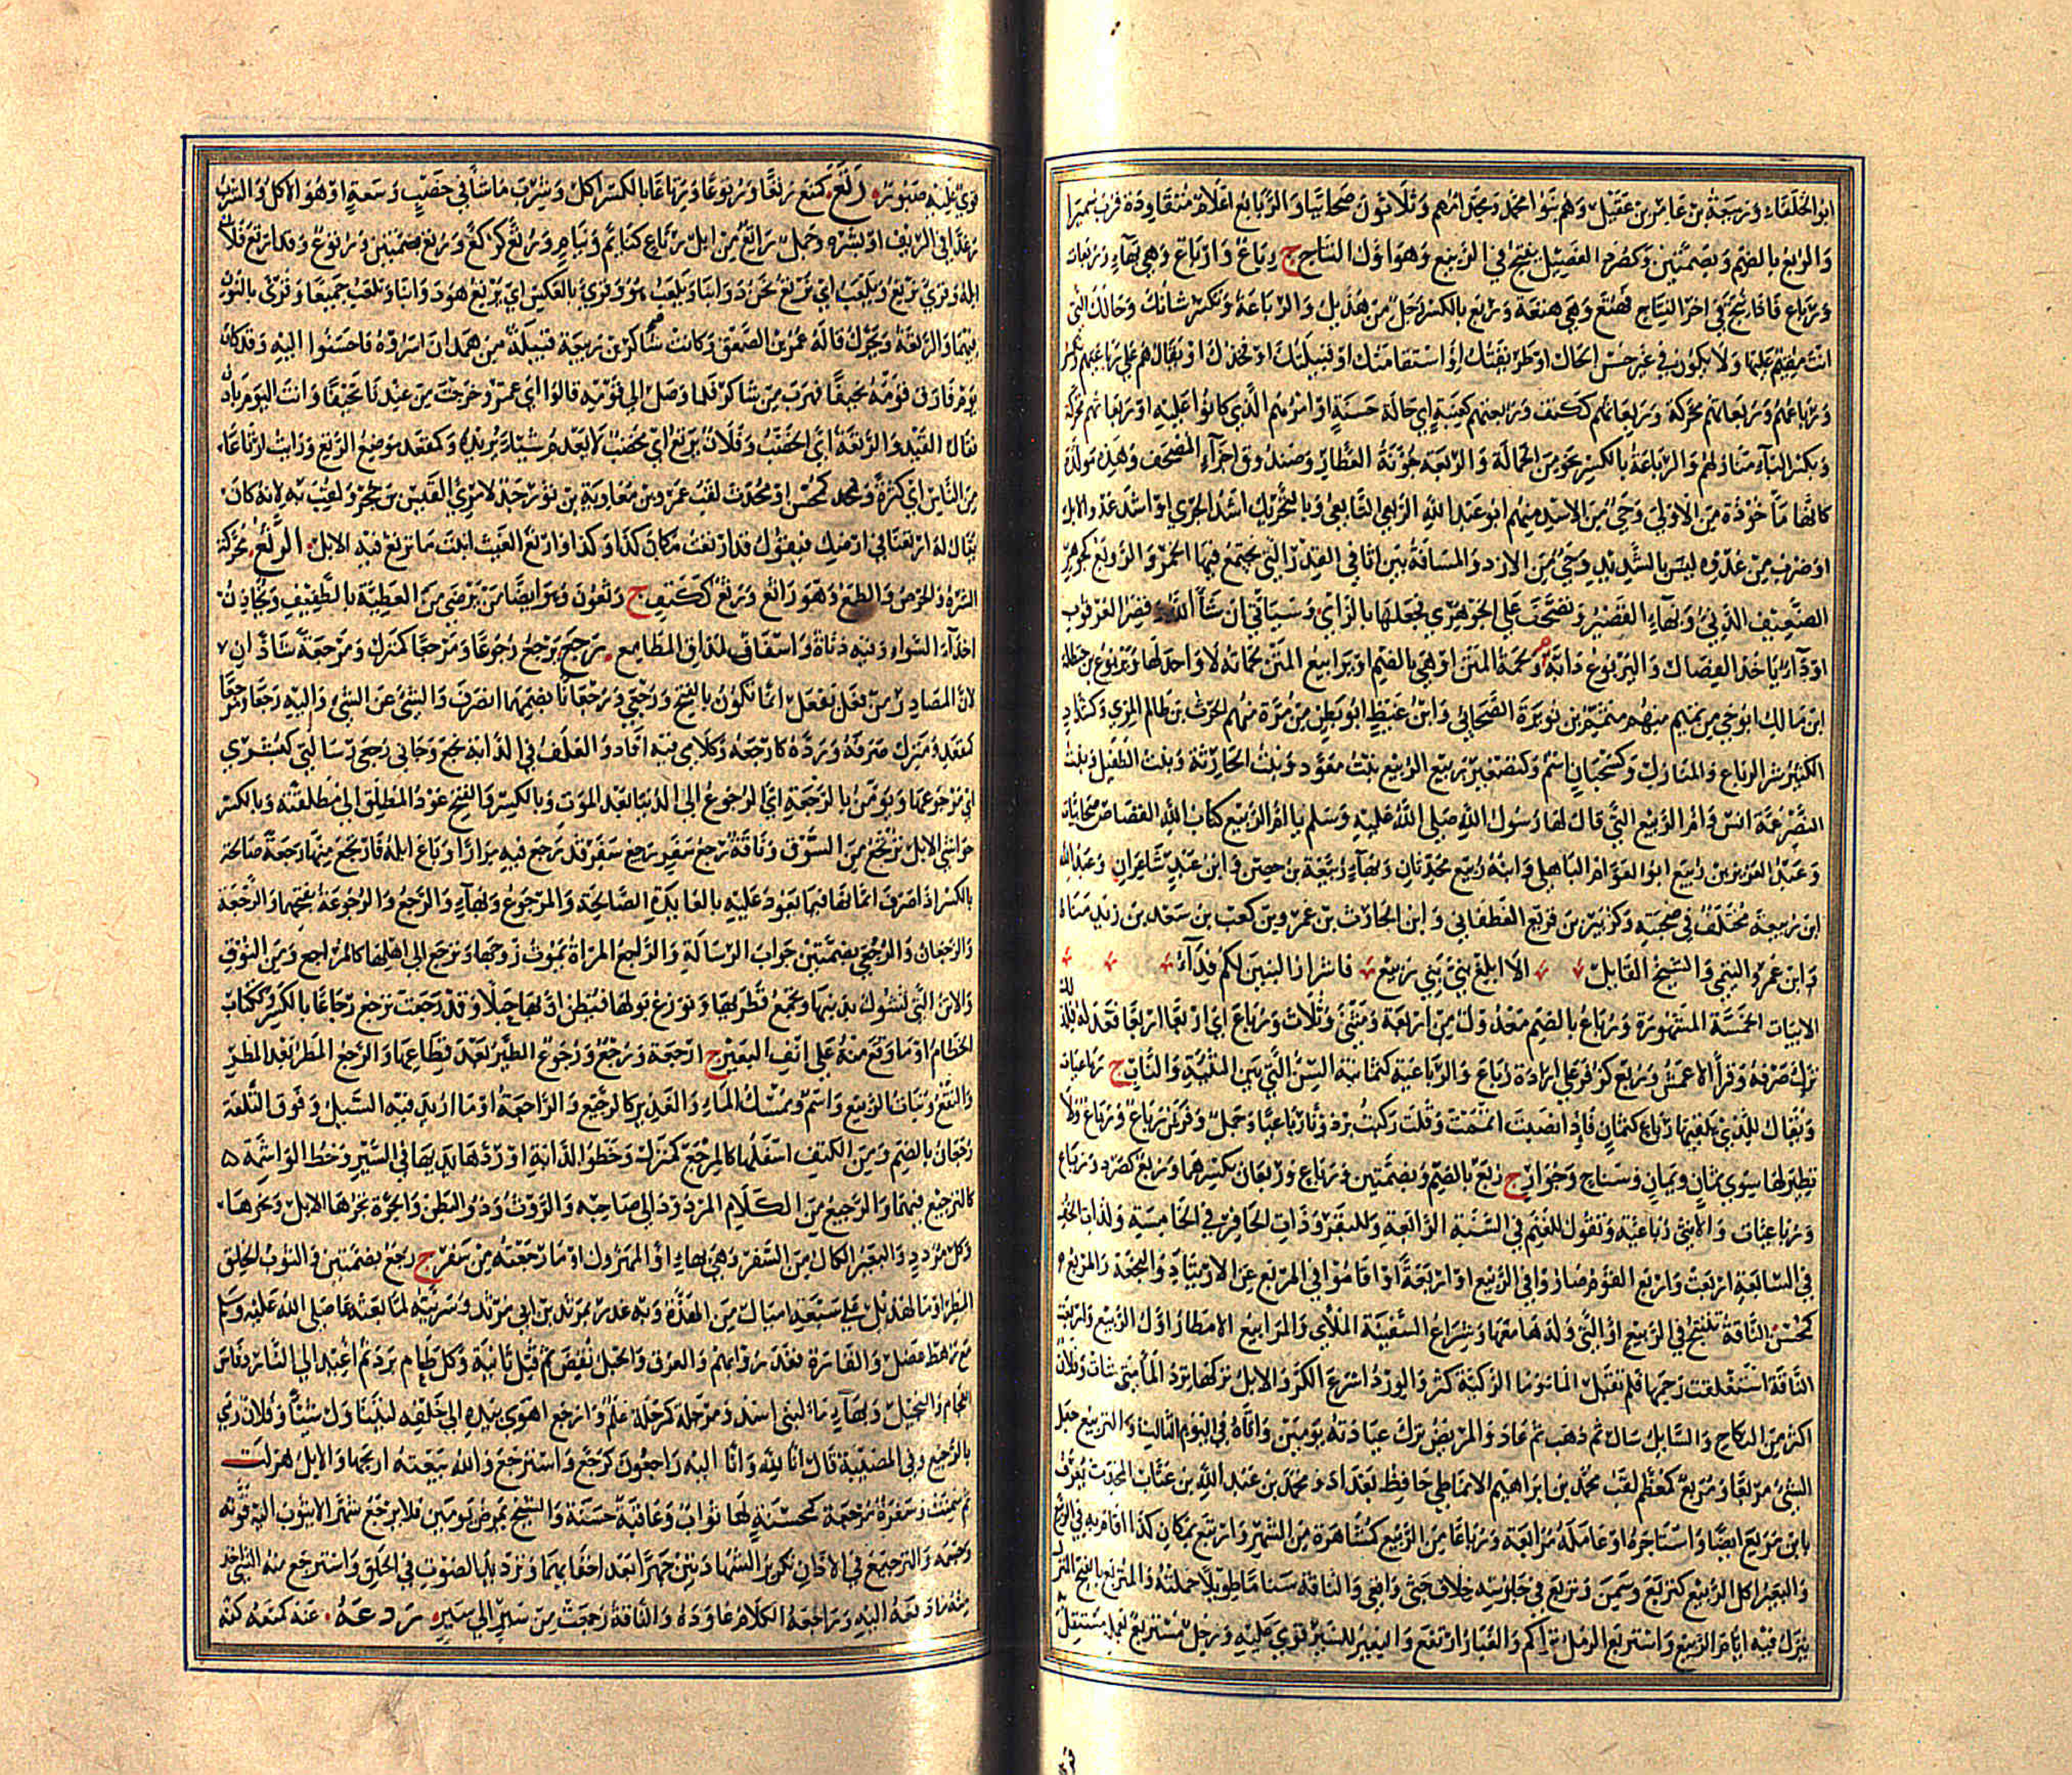 ابو الخلفاء وربيعة بن عامر بن عقيل وهم بنو امهم وثلاثون صحابيا والربايع اعلام متقاودة قرب سميرا
والربع بالضم وبضمتين وكصرد الفصيل ينتج في الربيع وهو اول النتاج ج رباع وارباع وهي بهاء وربعات
ورباع فاذا نتج في اخر النتاج فهبع وهي هبعة وربع بالكسر رجل من هذيل والرباعة وتكسر شانك وحالك التي
انت مقيم عليها ولا يكون في غير حسن الحال او طريقتك او استقامتك او قبيلتك او فخذك او يقال هم على رباعتهم ويكسر
ورباعهم وربعاتهم محركة وربعاتهم ككتف وربعتهم كعنبة اي حالة حسنة او امرهم الذي كانوا عليه او ربعاتهم محركة
وبكسر الباء منازلهم والرباعة بالكسر نحو من الحمالة والربعة جونة العطار وصندوق اجزاء المصحف وهذه مولدة
كانها ماخوذة من الاولى وحي من الاسد منهم ابو عبد الله الربعي التابعي وبالتحريك اشد الجري او اشد عدو الابل
او ضرب من عدوه ليس بالشديد وحي من الازد والمسافة بين اثافي القدر التي يجتمع فيها الجمر والروبع كجوهر
الضعيف الدني وبهاء القصير وتصحف على الجوهري فجعلها بالزاي وسياتي ان شاء الله قصر العرقوب
او داء ياخذ الفصال واليربوع دابة ولحمة المتن او هي بالضم او يرابيع المتن لحماته لا واحد لها ويربوع بن حنظلة
ابن مالك ابو حي من تميم منهم متمم بن نويرة الصحابي وابن غيظ ابو بطن من مرة منهم الحرث بن ظالم المري وكشداد
الكثير شرا الرباع والمنازل وكسحبان اسم وكتصغير ربيع الربيع بنت معوذ وبنت الحارثة وبنت الطفيل وبنت
النضر عمة انس وام الربيع التي قال لها رسول الله صلى الله عليه وسلم يا ام الربيع كتاب الله القصاص صحابيات
وعبد العزيز بن ربيع ابو العوام الباهلي وابنه ربيع محدثان وبهاء ربيعة بن حصن وابن عبد شاعران وعبد الله
ابن ربيعة مختلف في صحبته وكزبير بن قزيع الغطفاني وابن الحارث بن عمرو بن كعب بن سعد بن زيد مناة
وابن عمرو التيمي والشيخ القايل الا ابلغ بني بني ربيع فاشرار البنين لكم فداء
الابيات الخمسة المشهورة ورباع بالضم معدول من اربعة ومثنى وثلاث ورباع اي اربعا اربعا فعدله فلذلك
ترك صرفه وقرا الاعمش وربع كزفر على ارادة رباع والرباعية كثمانية السن التي بين الثنية والناب ج رباعيات
ويقال للذي يلقيها رباع كثمان فاذا نصبت اتممت وقلت ركبت برذونا رباعيا وجمل وفرس رباع ورباع ولا
نظير لها سوى ثمان ويمان وشناح وجوار ج ربع بالضم وبضمتين ورباع وربعان بكسرهما وربع كصرد ورباع
ورباعيات والانثى رباعية وتقول للغنم في السنة الرابعة وللبقر وذات الحافر في الخامسة ولذات الخف
في السابعة اربعت واربع القوم صاروا في الربيع او اربعة او اقاموا في المربع عن الارتياد والنجعة والمربع
كمحسن الناقة تنتج في الربيع او التي ولدها معها وشراع السفينة الملأى والمرابيع الامطار اول الربيع واربعت
الناقة استغلقت رحمها فلم تقبل الماء وماء الركية كثر والورد اسرع الكر والابل تركها ترد الماء متى شات وفلان
اكثر من النكاح والسايل سال ثم ذهب ثم عاد والمريض ترك عيادته يومين واتاه في اليوم الثالث والتربيع جعل
الشي مربعا ومربع كمعظم لقب محمد بن ابراهيم الانماطي حافظ بغداد ومحمد بن عبد الله بن عتاب المحدث يعرف
بابن مربع ايضا واستاجره او عامله مرابعة ورباعا من الربيع كمشاهرة من الشهر وارتبع بمكان كذا اقام به في الربيع
والبعير اكل الربيع كتربع وسمن وتربع في جلوسه خلاف جثى واقعى والناقة سناما طويلا حملته والمرتبع بالفتح المنزل
ينزل فيه ايام الربيع واستربع الرمل تراكم والغبار ارتفع والبعير للسير قوي عليه ورجل مستربع بعمله مستقل
قوي عليه صبور رتع كمنع رتعا ورتوعا ورتاعا بالكسر اكل وشرب ما شا في خصب وسعة او هو الاكل والشرب
رغدا في الريف او بشره وجمل راتع من ابل رتاع كنايم ونيام ورتع كركع ورتع بضمتين ورتوع وقد ارتع فلان
ابله وقرئ نرتع ويلعب اي نرتع نحن دوابنا ويلعب هو وقرئ بالعكس اي يرتع هو دوابنا ونلعب جميعا وقرئ بالنون
فيهما والرتعة ويحرك قاله عمرو بن الصعق وكانت شاكر بن ربيعة قبيلة من همدان اسروه فاحسنوا اليه وقد كان
يوم فارق قومه نحيفا فهرب من شاكر فلما وصل الى قومه قالوا اي عمرو خرجت من عندنا نحيفا وانت اليوم بادن
فقال القيد والرتعة اي الخصب وفلان يرتع اي مخصب لا يعدم شيا يريده وكمقعد موضع الرتع ورايت ارتاعا
من الناس اي كثرة ومحمد كمحسن او محدث لقب عمرو بن معاوية بن ثور جد لامرئ القيس بن حجر ولقب به لانه كان
يقال له ارتعنا في ارضك فيقول قد ارتعت مكان كذا وكذا وارتع الغيث انبت ما ترتع فيه الابل الرثع محركة
الشره والحرص والطمع وهو راثع ورثع ككتف ج رثعون وهو ايضا من يرضى من العطية بالطفيف ويخادن
اخدان السوء وفيه دناة واسفاف لمداق المطامع رجع يرجع رجوعا ومرجعا كمنزل ومرجعة شاذان
لان المصادر من فعل يفعل انما تكون بالفتح ورجعى ورجعانا بضمهما انصرف والشي عن الشي واليه رجعا ومرجعا
كمقعد ومنزل صرفه ورده كارجعه وكلامي فيه افاد والعلف في الدابة نجع وجاني رجعى رسالتي كبشرى
اي مرجوعها ويومن بالرجعة اي الرجوع الى الدنيا بعد الموت وبالكسر والفتح عود المطلق الى مطلقته وبالكسر
حواشي الابل ترتجع من السوق وناقة رجع سفر ورجيع سفر قد رجع فيه مرارا وباع ابله فارتجع منها رجعة صالحة
بالكسر اذا صرف اثمانها فيما يعود عليه بالعايدة الصالحة والمرجوع وبهاء والرجع والرجوعة بفتحهما والرجعة
والرجعان والرجعى بضمتين جواب الرسالة والراجع المراة يموت زوجها وترجع الى اهلها كالمراجع ومن النوق
والاتن التي تشول بذنبها وتجمع قطريها وتوزع بولها فيظن ان بها حبلا وقد رجعت ترجع رجاعا بالكسر وككتاب
الخطام او ما وقع منه على انف البعير ج ارجعة ورجع ورجوع الطير بعد قطاعها والرجع المطر بعد المطر
والنفع ونبات الربيع واسم وممسك الماء والغدير كالرجيع والراجعة او ما ارتد فيه السيل وفوق التلعة
رجعان بالضم ومن الكتف اسفلها كالمرجع كمنزل وخطو الدابة او ردها يديها في السير وخط الواشمة
كالترجيع فيهما والرجيع من الكلام المردود الى صاحبه والروث وذو البطن والجرة تجرها الابل ونحوها
وكل مردد والبعير الكال من السفر وهي بهاء او المهزول او ما رجعته من سفر ج رجع بضمتين والثوب الخلق
المطرا وماء لهذيل على سبعة اميال من الهدة وبه غدر بمرثد بن ابي مرثد وسريته لما بعثه صلى الله عليه وسلم
مع رهط عضل والقارة فغدروا بهم والعرق والحبل نقض ثم فتل ثانية وكل طعام برد ثم اعيد الى النار وفاس
اللجام والبخيل وبهاء ماء لبني اسد ومرحلة كرجلة علم وارجع اهوى بيده الى خلفه ليتناول شيا وفلان رمى
بالرجيع وفي المصيبة قال انا لله وانا اليه راجعون كرجع واسترجع والله بيعته اربحها والابل هزلت
ثم سمنت وسفرة مرجعة كمحسنة لها ثواب وعاقبة حسنة والشيخ يمرض يومين فلا يرجع شهرا لا يثوب اليه قوته
وجسمه والترجيع في الاذان تكرير الشهادتين جهرا بعد اخفايهما وترديد الصوت في الحلق واسترجع منه الشي اخذ
منه ما دفعه اليه وراجعه الكلام عاوده والناقة رجعت من سير الى سير ردعه عنه كمنعه كفه